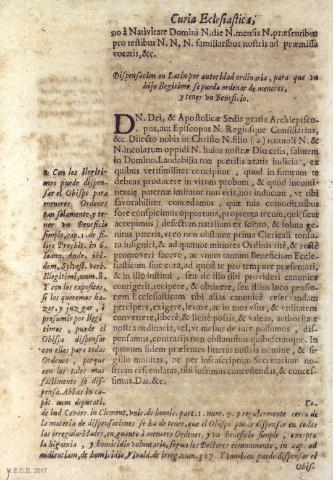 Curia Eclesiastica,
no à Nativitate Domini N. die N. mensis N. præsentibus
pro testibus N, N, N. familiaribus nostris ad præmissa
vocatis, &c.
Dispensacion en Latin por autoridad ordinaria, para que vn
hijo ilegitimo se pueda ordenar de menores,
y tener vn Beneficio.
DN. Dei, & Apostolicæ Sedis gratia Archiepisco-
pus, aut Episcopus N. Regiusque Consiliarius,
&c. Dilecto nobis in Christo N. filio (a) naturali N. &
N. incolarum oppidi N. huius nostræ Diœcesis, salutem
in Domino. Laudabilia tuæ puerilis ætatis indicia, ex
quibus verisimiliter concipitur, quod in futurum te
debeas producere in virum probum, & quod inconti-
nentiæ paternæ imitator non eris, nos inducunt, vt tibi
favorabiliter concedamus, quæ tuis comoditatibus
fore conspicimus opportuna, propterea tecum, qui sicut
accepimus defectum natalium ex soluto, & soluta ge-
nitus pateris, vt eo non obstante prima Clericali tonsu-
ra insigniri, & ad quatuor minores Ordinis ritè, & rectè
promoveri facere, ac vnum tantum Beneficium Eccle-
siasticum sine cura, ad quod te pro tempore præsentari,
& in illo institui, seu de illo tibi provideri canonicè
contigerit, recipere, & obtinere, seu illius loco pensio-
nem Ecclesiasticam tibi alias canonicè reservandam
percipere, exigere, levare, ac in tuos vsus, & vtilitatem
convertere, liberè, & licitè possis, & valeas, authorita-
te nostra ordinaria, vel, vt melius de iure possumus, dis-
pensamus, contrarijs non obstantibus quibuscumque. In
quorum fidem præsentes litteras nostris nomine, & si-
gillo munitas, ac per infrascriptum Secretarium no-
strum referendatas, fieri iussimus concedendas, & conces-
simus. Dat. &c.
a. Con los Ilegiti-
mos puede dispen-
sar el Obispo para
menores Ordenes
tan solamente, y te-
ner vn Beneficio
simple, cap. 1. de fi-
lijs Presbit. in 6.
ibi-
dem, Sylvest. verb.
Illegitimus, num. 8.
Y con los expositos,
si los queremos ha-
zer, y juzgar, ò
presumir por ilegi-
timos, puede el
Obispo dispensar
con ellos para todas
Ordenes, porque
con los tales mas
facilmente se dis-
pensa. Abbas in ca-
pit. num deputati,
de lud. Covarr. in Clement, vnic. de homic. part. 2. num. 9. y regularmente cerca de
la materia de dispensaciones se ha de tener, que el Obispo puede dispensar en todas
las irregularidades, en quanto à menores Ordenes, y vn Beneficio simple, excepto
la bigamia, y homicidio voluntario, segun los Doctores comunmente, in cap. ad
audientiam, de homicidio, Vivald. de irreg. num. 317. Y tambien puede dispensar el
Ca-
Obis-
M.E.C.D. 2017